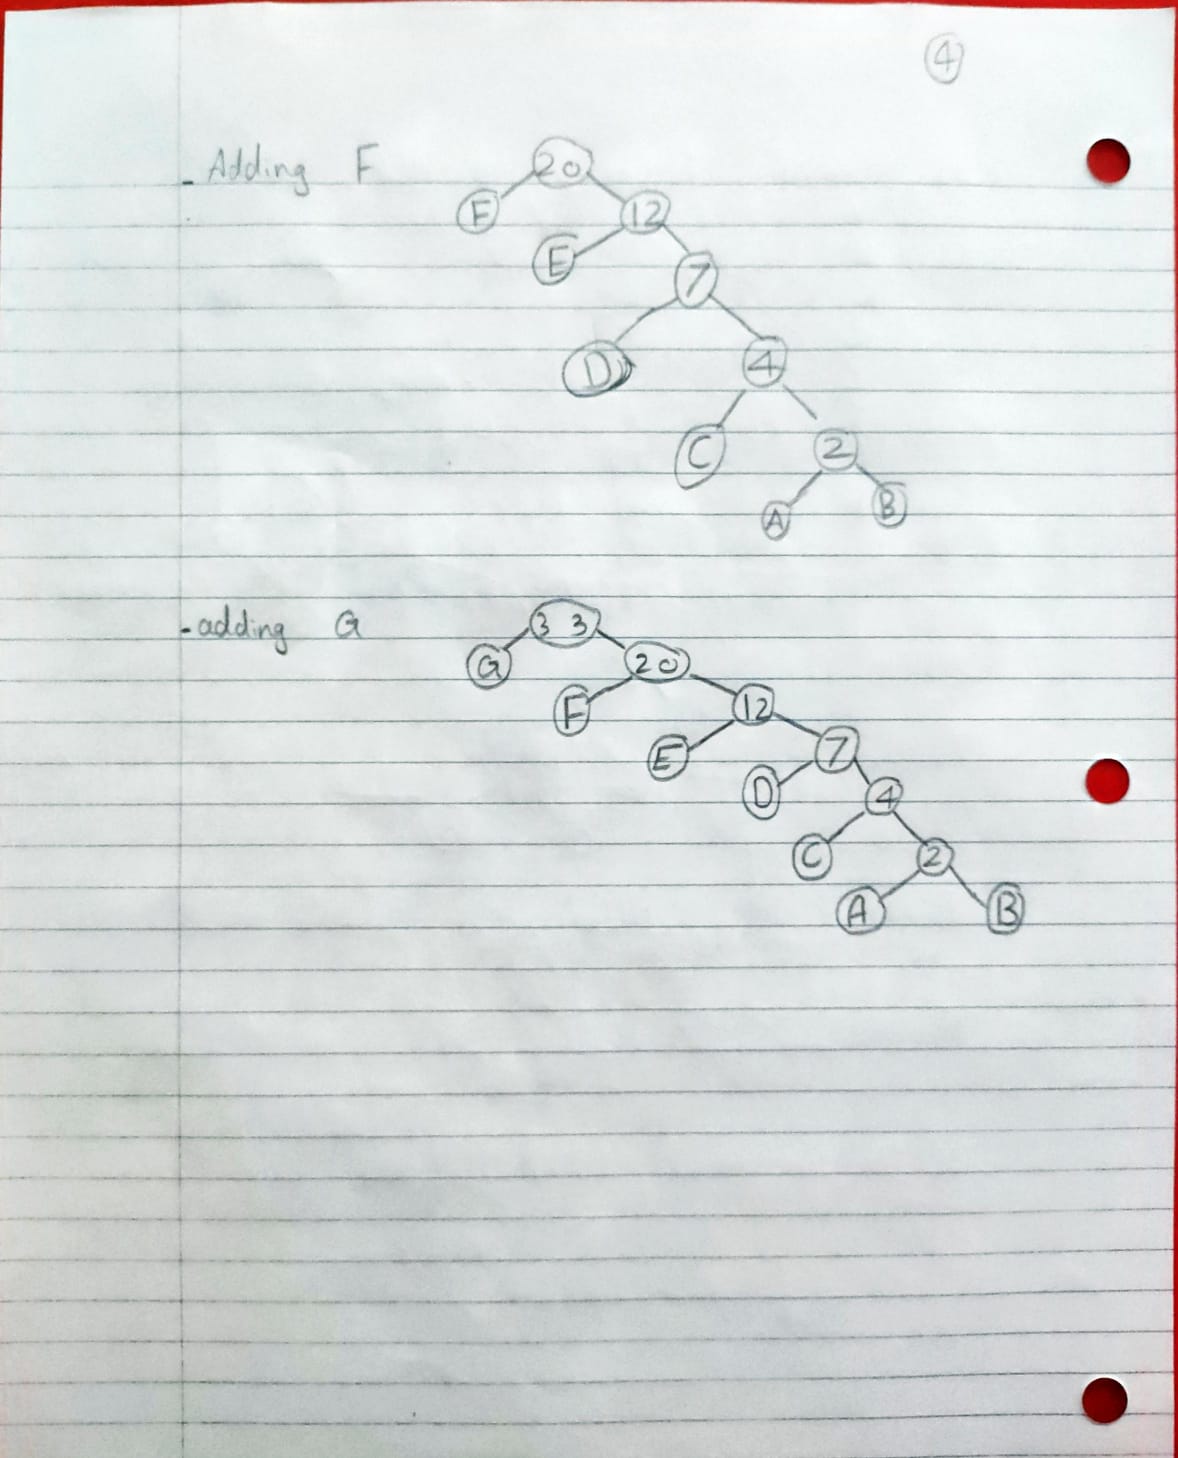 4
- Adding F
20
F 12
E
7
D 4
C 2
A B
- adding G
33
G 20
F 12
E 7
D 4
C 2
A B